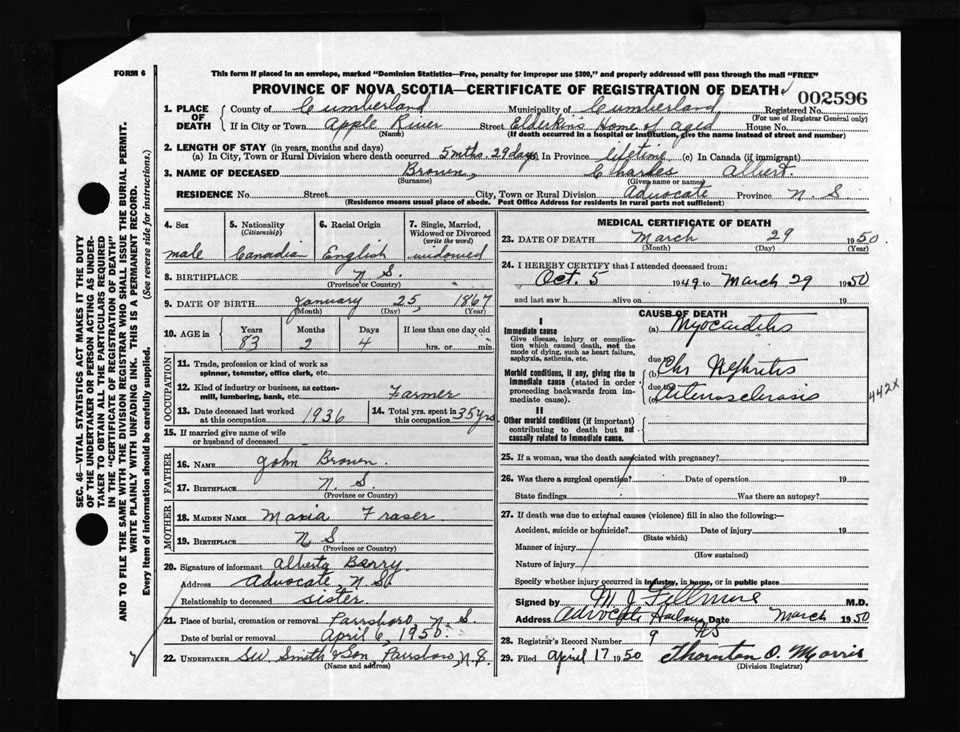 FORM 6
This form if placed in an envelope, marked "Dominion Statistics—Free, penalty for improper use $300," and properly addressed will pass through the mail "FREE"
PROVINCE OF NOVA SCOTIA—CERTIFICATE OF REGISTRATION OF DEATH
002596
1. PLACE OF DEATH
County of Cumberland Municipality of Cumberland Registered No.
(For use of Registrar General only)
If in City or Town Apple River Street Elderkins Home of aged House No.
(Name) (If death occurred in a hospital or institution, give the name instead of street and number)
2. LENGTH OF STAY (in years, months and days)
(a) In City, Town or Rural Division where death occurred 5 mths. 29 days In Province lifetime (c) In Canada (if immigrant)
3. NAME OF DECEASED Brown, Charles Albert.
(Surname) (Given name or names)
RESIDENCE No. Street City, Town or Rural Division Advocate Province N. S.
(Residence means usual place of abode. Post Office Address for residents in rural parts not sufficient)
4. Sex 5. Nationality (Citizenship) 6. Racial Origin 7. Single, Married, Widowed or Divorced (write the word)
male Canadian English widowed
8. BIRTHPLACE N S.
(Province or Country)
9. DATE OF BIRTH January 25, 1867
(Month) (Day) (Year)
10. AGE in Years Months Days If less than one day old
83 2 4 hrs. or min.
OCCUPATION
11. Trade, profession or kind of work as spinner, teamster, office clerk, etc.
12. Kind of industry or business, as cotton-mill, lumbering, bank, etc. Farmer
13. Date deceased last worked at this occupation 1936 14. Total yrs. spent in this occupation 35 yrs
15. If married give name of wife or husband of deceased
FATHER
16. NAME John Brown.
17. BIRTHPLACE N. S.
(Province or Country)
MOTHER
18. MAIDEN NAME Maria Fraser
19. BIRTHPLACE N S.
(Province or Country)
20. Signature of informant Alberta Berry.
Address Advocate, N. S.
Relationship to deceased sister.
21. Place of burial, cremation or removal Parrsboro, N. S.
Date of burial or removal April 6, 1950.
22. UNDERTAKER SW. Smith & Son Parrsboro, N.S.
(Name and address)
MEDICAL CERTIFICATE OF DEATH
23. DATE OF DEATH March 29 1950
(Month) (Day) (Year)
24. I HEREBY CERTIFY that I attended deceased from:
Oct. 5 1949 to March 29 1950
and last saw h alive on 19
CAUSE OF DEATH
I
Immediate cause
Give disease, injury or complication which caused death, not the mode of dying, such as heart failure, asphyxia, asthenia, etc.
(a) Myocarditis
due to
Morbid conditions, if any, giving rise to immediate cause (stated in order proceeding backwards from immediate cause).
(b) Chr Nephritis
due to
(c) Arteriosclerosis
442X
II
Other morbid conditions (if important) contributing to death but not causally related to immediate cause.
25. If a woman, was the death associated with pregnancy?
26. Was there a surgical operation? Date of operation 19
State findings Was there an autopsy?
27. If death was due to external causes (violence) fill in also the following:—
Accident, suicide or homicide? Date of injury 19
(State which)
Manner of injury
(How sustained)
Nature of injury
Specify whether injury occurred in industry, in home, or in public place
Signed by M. J. Fillmore M.D.
Address Advocate Harbour NS Date March 1950
28. Registrar's Record Number 9
29. Filed April 17 1950 Thornton O. Morris
(Division Registrar)
SEC. 46—VITAL STATISTICS ACT MAKES IT THE DUTY
OF THE UNDERTAKER OR PERSON ACTING AS UNDER-
TAKER TO OBTAIN ALL THE PARTICULARS REQUIRED
IN THE "CERTIFICATE OF REGISTRATION OF DEATH"
AND TO FILE THE SAME WITH THE DIVISION REGISTRAR WHO SHALL ISSUE THE BURIAL PERMIT.
WRITE PLAINLY WITH UNFADING INK. THIS IS A PERMANENT RECORD.
Every item of information should be carefully supplied. (See reverse side for instructions.)